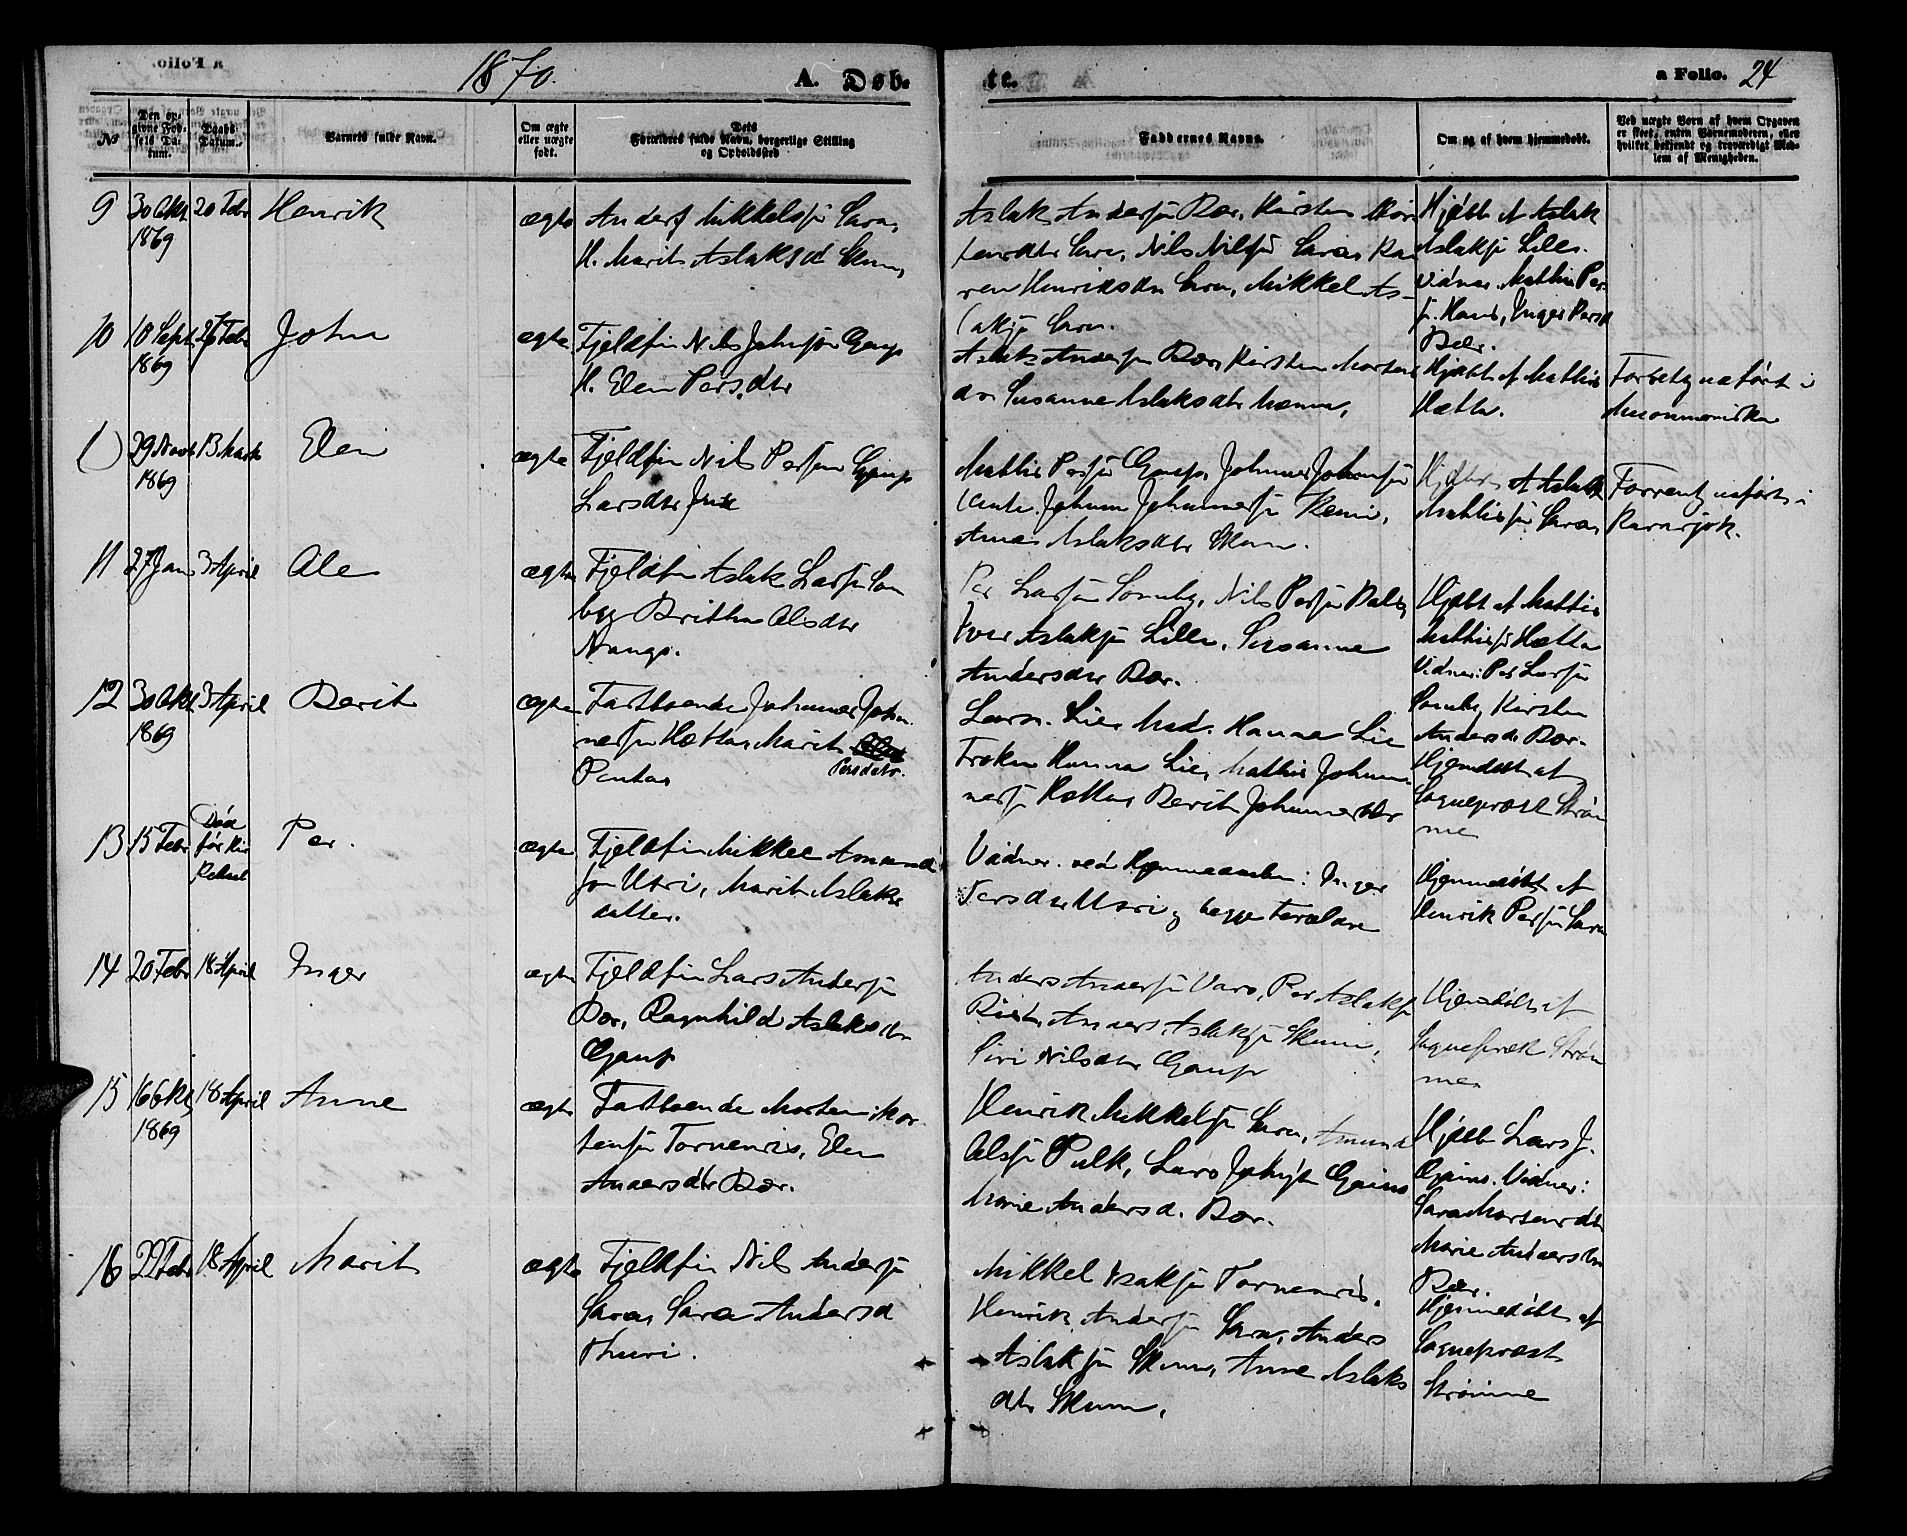 1870.
A. Døb-
te.
a Folio. 24
№
Den op-
givne Fød-
sels Da-
tum.
Daabs
Datum.
Barnets fulde Navn.
Om ægte
eller uægte
født.
Dets
Forældres fulde Navn, borgerlige Stilling
og Opholdssted
Faddernes Navne.
Om og af hvem hjemmedøbt.
Ved uægte Børn af hvem Opgaven
er skeet, enten Barnemoderen, eller
hvilket bekjendt og troværdigt Med-
lem af Menigheden.
9 30 Okt 20 Febr Henrik ægte Anders Mikkelsn Sara,
1869
H. Marit Aslaksd Skum
Aslak Andersn Bær, Kirsten Mor
tensdtr Sara, Nils Nilsn Sara, Ka
ren Henriksdtr Sara, Mikkel As-
laksn Sara.
Hjdbt af Aslak
Aslaksn Lille.
Vidner. Mathis Per
sn. Inger Persd
Bær.
10 10 Sept 27 Febr John ægte Fjeldfin Nils Johnsøn Gaup
1869
H. Elen Persdtr
Aslak Andersn Bær, Kirsten Mortens
dtr Susanne Aslaksdtr
Hjdbt af Mathis
Hætta.
i
29 Novb 13 Marts Elen ægte Fjeldfin Nils Persen Gaup
1869
Larsdtr
Mathis Persn Gaup, Johannes Johansn
Johannessn Kemi,
Anna Aslaksdtr Skum.
af Aslak
Mathissn Sara
i
Karasjok.
11 27 Jan 3 April Ole ægte Fjeldfin Aslak Larsn Som
by, Britha Olsdtr
Nango.
Per Larsn Somby, Nils Persn Bals,
Iver Aslaksn Lille, Susanne
Andersdtr Bær.
Hjdbt af Mathis
Mathissn Hætta
Vidner: Per Larsn
Somby, Kirsten
Andersd. Bær.
12 30 Okt 3 April Berit ægte Fastboende Johannes Johan
1869
nessn Hætta, Marit
Persdatr.
Pentha
Lensm. Lie, Mad. Hanna Lie
Frøken Hanna Lie, Mathis Johan
nessn Hætta, Berit Johannesdtr
Hjemdøbt af
Sognepræst Strøm
me
13 15 Febr Død
før Kir
Per. ægte Fjeldfin Mikkel Amund
sn Utsi, Marit Aslaks
datter.
Vidner. ved Hjemmedaaben: Inger
Persdtr Utsi og begge Forældre
Hjemmedøbt af
Henrik Persn Sara
14 20 Febr 18 April Inger ægte Fjeldfin Lars Andersn
Bær, Ragnhild Aslaksdtr
Gaup
Anders Andersn Vars, Per Aslaksn
Anders Aslaksn Skum,
Siri Nilsdtr Gaup
Hjemdøbt af
Sognepræst Strøm
me
15 16 Okt 18 April Anne ægte Fastboende Morten Mor
1869
tensn Tornensis, Elen
Andersdtr Bær.
Henrik Mikkelsn Sara, Amund
Olsn Pulk, Lars Johnsn Gaino
Marie Andersd. Bær.
Hjdbt Lars J.
Gaino. Vidner:
Sara Mortensdtr
Marie Andersdtr
Bær.
16 22 Febr 18 April Marit ægte Fjeldfin Nils Andersn
Sara, Sara Andersd
Thuri.
Mikkel Isaksn Tornensis,
Henrik Andersn Sara, Anders
Aslaksn Skum, Anne Aslaks
dtr Skum,
Hjemmedøbt af
Sognepræst
Strømme